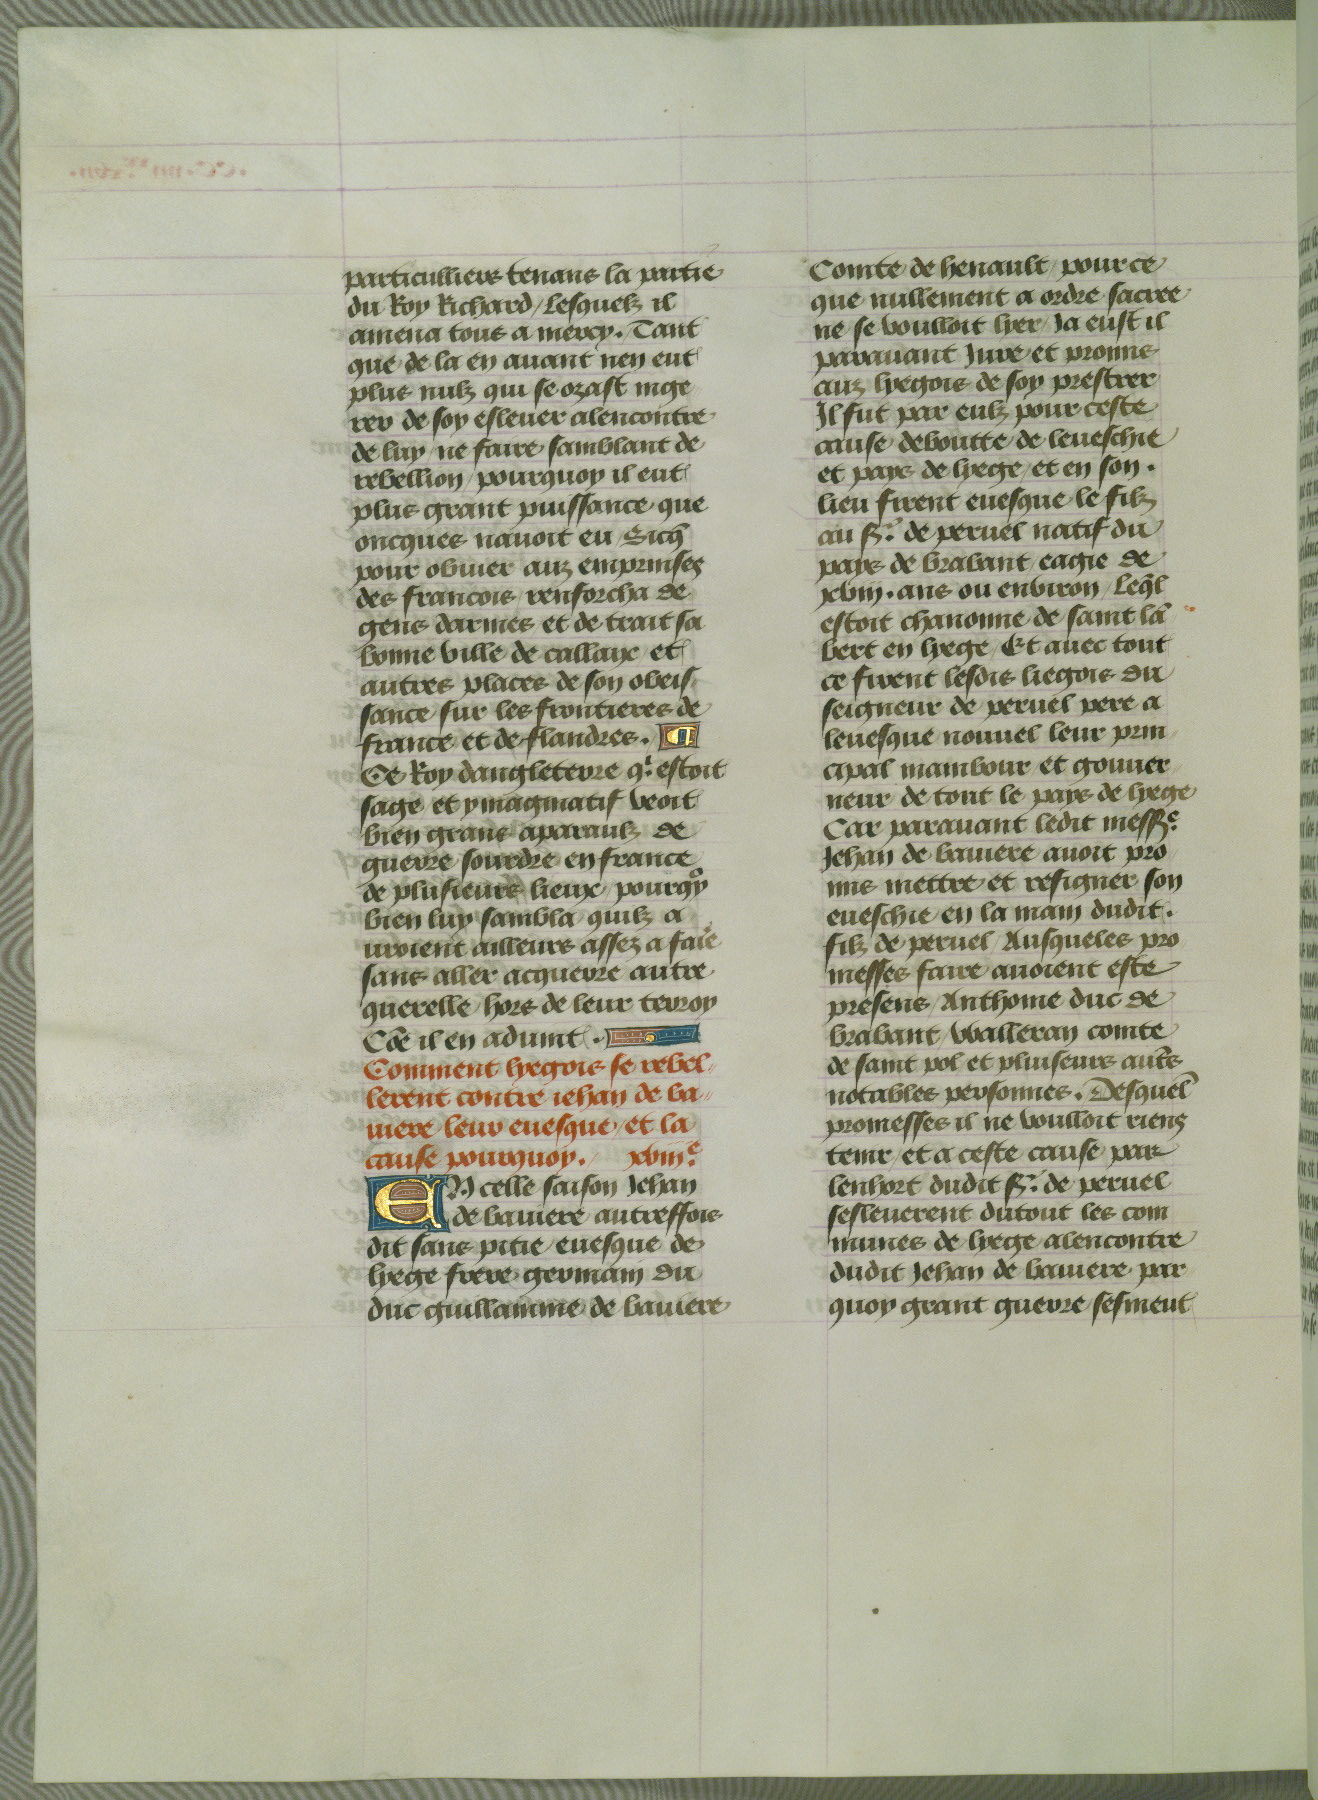 particulliers tenans la partie
du Roy Richard / Lesquelz il
amena tous a mercy. Tant
que de la en auant nen eut
plus nulz qui se ozast inge
rer de soy esleuer alencontre
de luy ne faire samblant de
rebellion / pourquoy il eut
plus grant puissance que
oncques nauoit eu / Sicq̄
pour obuier aux emprinses
des francois renforcha de
gens darmes et de trait sa
bonne ville de callaix et
autres places de son obeis
sance sur les frontieres de
france et de flandres. ¶
Ce Roy dangleterre qͥ estoit
sage et ymaginatif veoit
bien grans aparaulz de
guerre sourdre en france
de plusieurs lieux / pourq̊y
bien luy sambla quilz a
uroient ailleurs assez a faire
sans aller acquerre autre
querelle hors de leur terroy
Cōe il en aduint.
Comment lyegois se rebel-
lerent contre iehan de ba-
uiere leur euesque / et la
cause pourquoy. xviijͤ.
EN celle saison Jehan
de bauiere autreffois
dit sans pitie euesque de
lyege frere germain du
duc guillamme de bauiere
Comte de henault / pour ce
que nullement a ordre sacree
ne se voulloit lyer / Ja eust il
parauant Jure et promis
aux lyegois de soy prestrer
Il fut par eulz pour ceste
cause deboutte de leueschie
et pays de lyege / et en son.
lieu firent euesque le filz
au sͬ. de peruel natif du
pays de brabant eagie de
xviij. ans ou environ / Leq̄l
estoit chanonne de saint lā
bert en lyege / Et auec tout
ce firent lesdis liegois du
seigneur de peruel pere a
leuesque nouuel leur prin
cipal mambour et gouuer
neur de tout le pays de lyege
Car parauant ledit messͤ.
Jehan de bauiere auoit pro
mis mettre et resigner son
eueschie en la main dudit.
filz de peruel / Ausqueles pro
messes faire auoient este
presens / Anthoine duc de
brabant / Walleran comte
de saint pol et pluiseurs aut̄s
notables personnes. Desquel̄
promesses il ne voulloit riens
tenir / et a ceste cause par
lenhort dudit sͬ. de peruel
sesleuerent dutout les com
munes de lyege alencontre
dudit Jehan de bauiere par
quoy grant guerre sesmeut